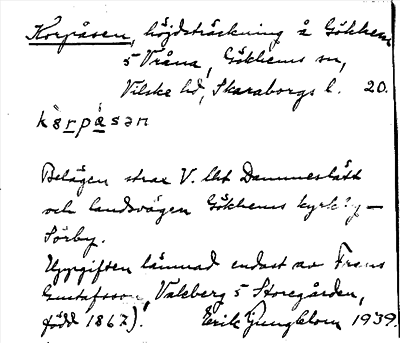 Korpåsen, höjdsträckning å Gökhem
5 Vråna, Gökhems sn,
Vilske hd, Skaraborgs l. 20.
kårpåsən
Belägen strax V. lht Dammeslätt
och landsvägen Gökhems kyrkby –
Sörby.
Uppgiften lämnad endast av Frans
Gustafsson, Valeberg 5 Storegården,
född 1867). Erik Ljungblom 1939.